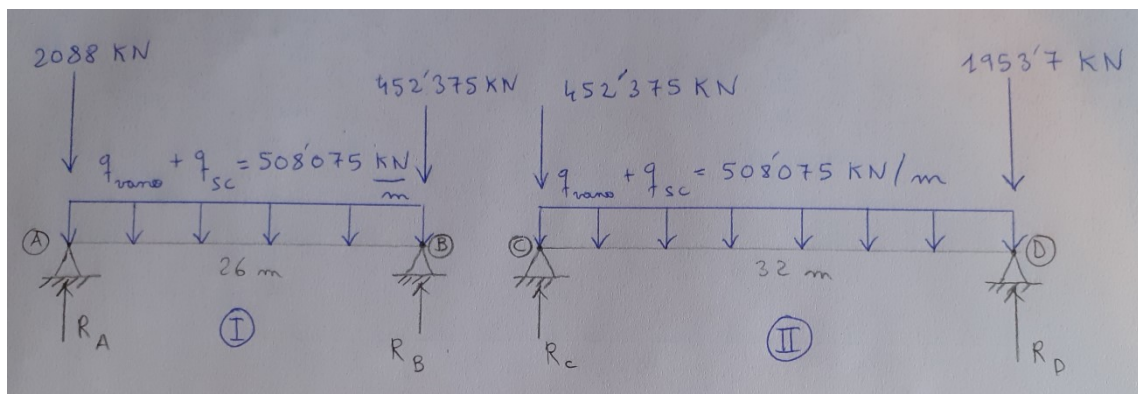 2088 KN
452'375 KN
452'375 KN
1953'7 KN
q vano + q sc = 508'075 KN/m
q vano + q sc = 508'075 KN/m
A
B
C
D
26 m
32 m
R A
I
R B
R c
II
R D